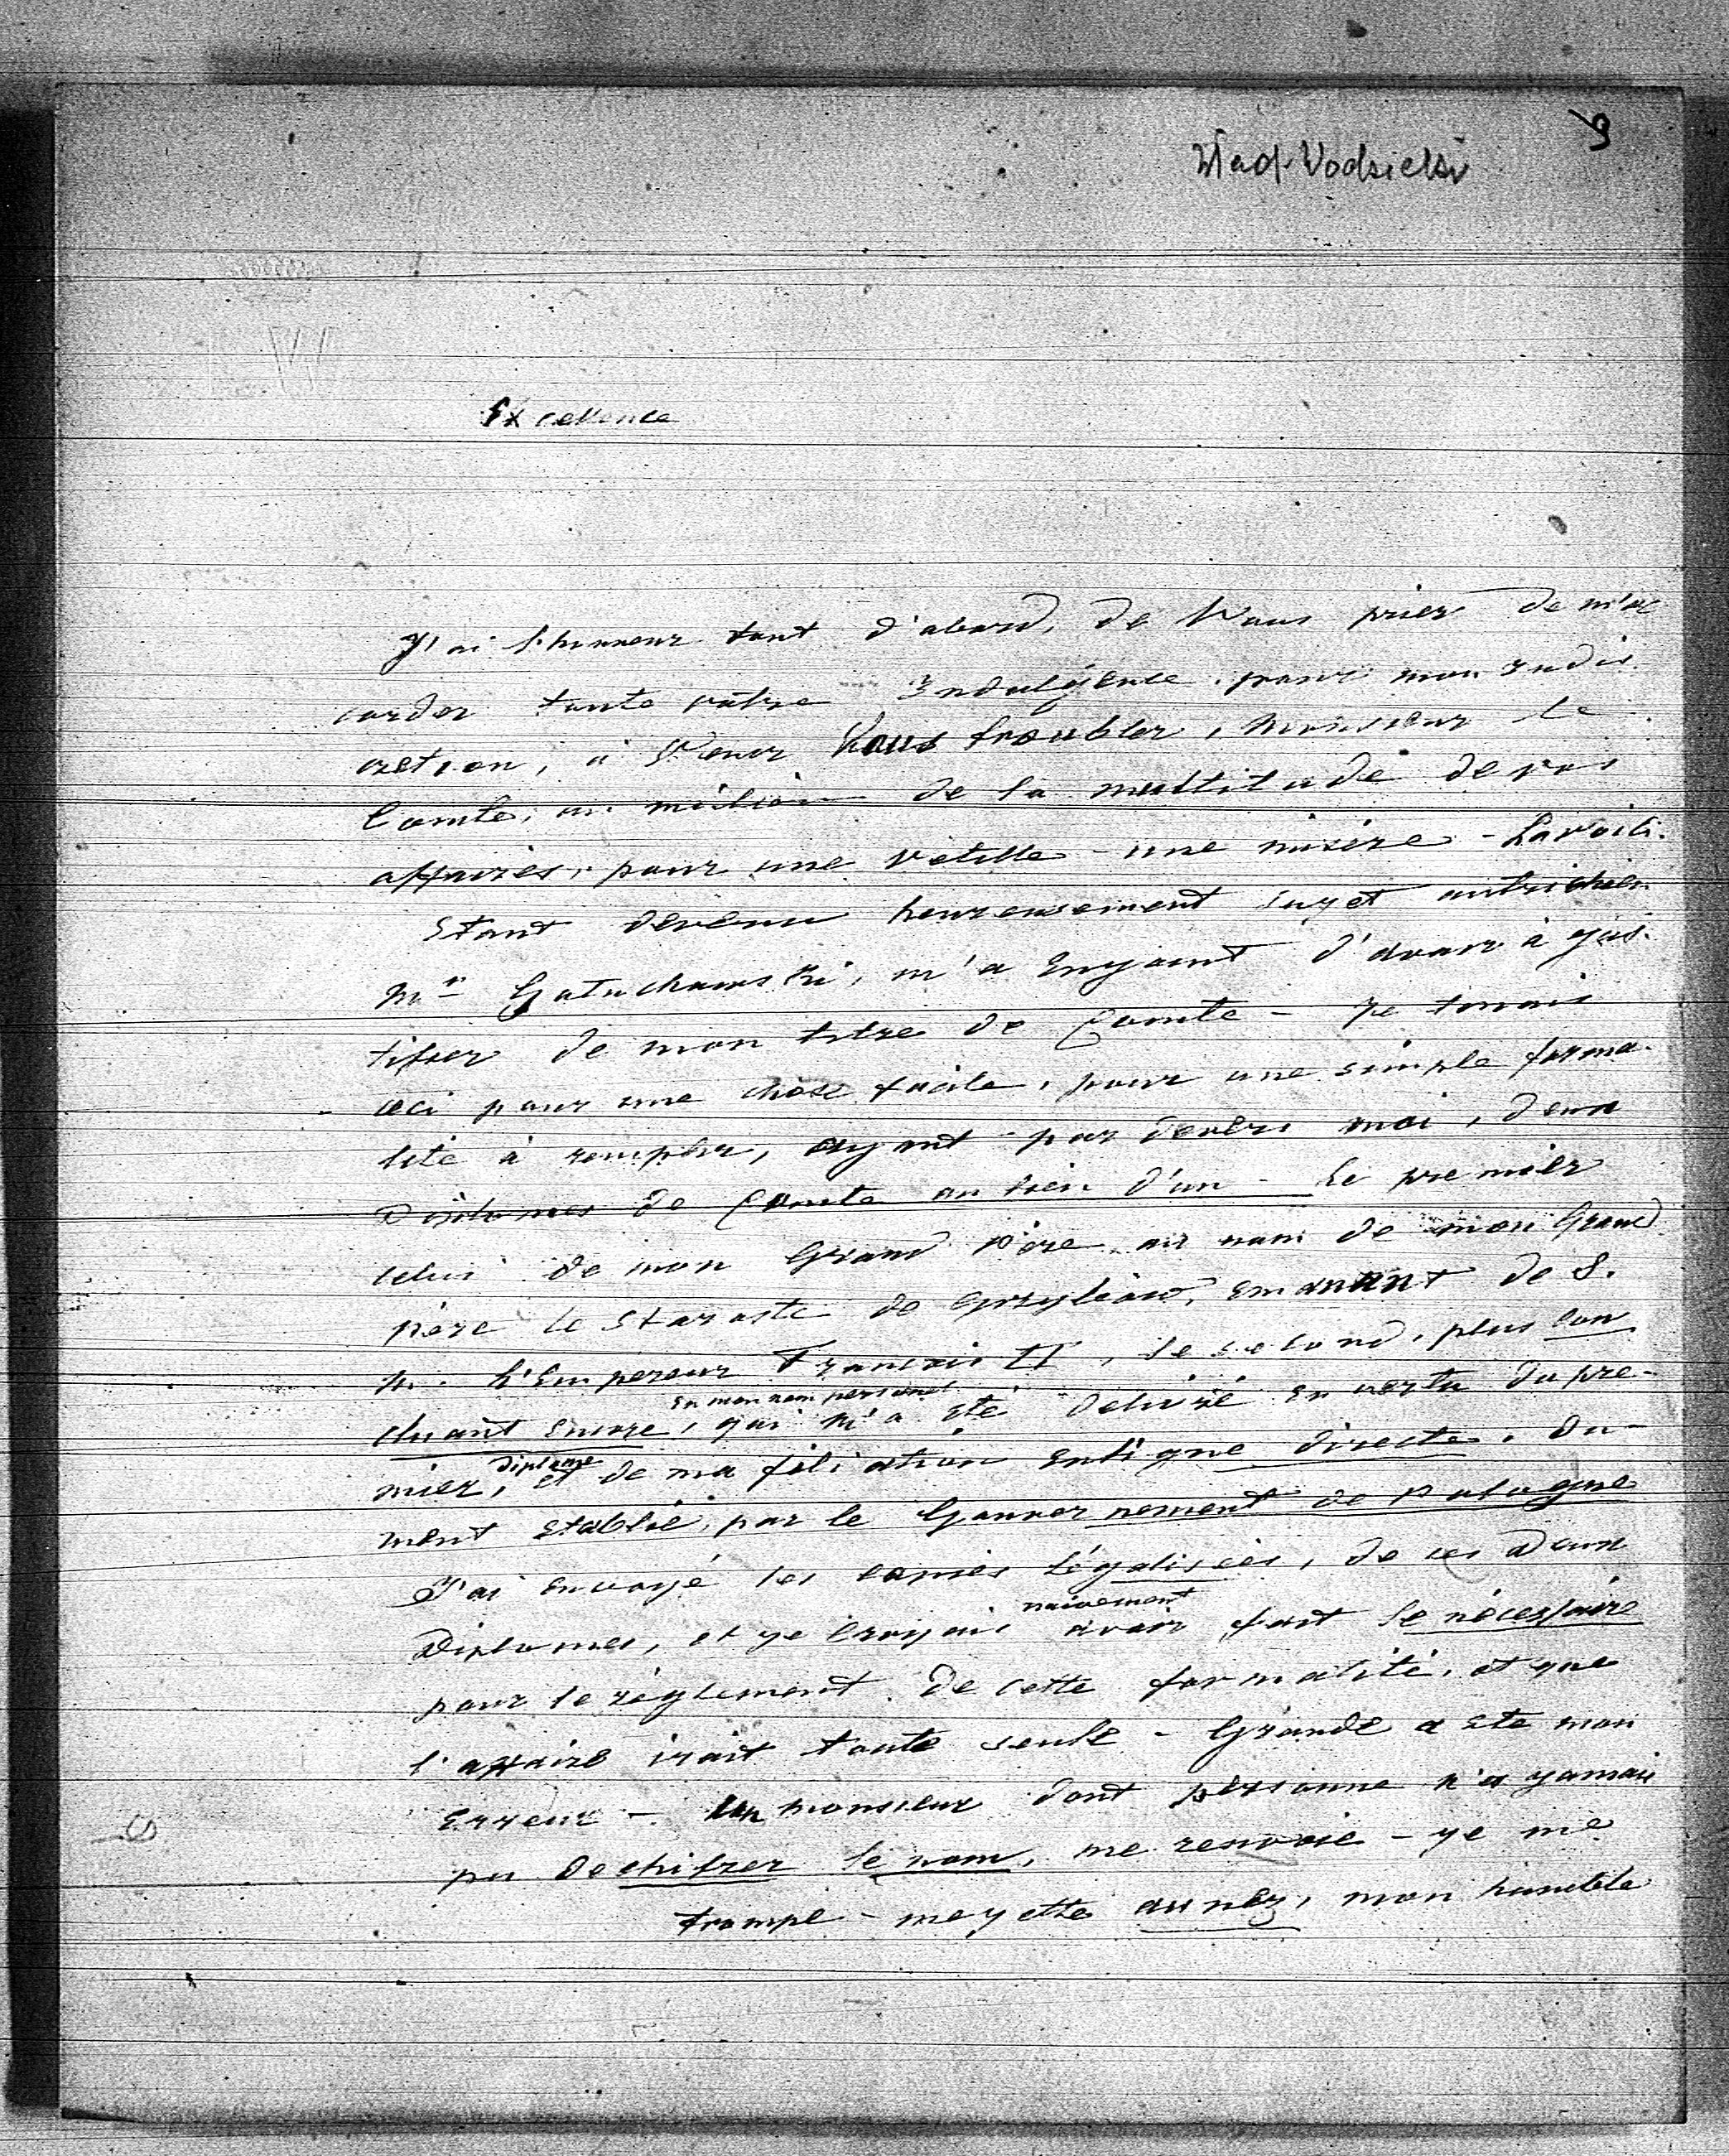 9
Wlad. Vodzicki
Excellence
J'ai l'honneur tout d'abord, de Vous prier de m'ac
corder toute vôtre Indulgence, pour mon Indis
cretion, à Venir Vous troubler, Monsieur le
Comte, au milieu de la multitude de vos
affaires, pour une vetille - une misère - La voici.
Etant devenu heureusement sujet autrichien
Mr Goluchowski, m'a Enjoint d'avoir à jus-
tifier de mon titre de Comte - Je tenais
ceci pour une chose facile, pour une simple forma-
lité à remplir, ayant par devers moi, deux
Diplomes de Comte au lieu d'un - Le premier
celui de mon Grand Père, au nom de mon Grand
père le Staroste de, Emanant de S.
M. l'Empereur François II, le second, plus con
cluant Encore, qui m'a été En mon nom personel delivré en vertu du pre-
mier, diplome et de ma filiation En ligne directe. Du-
ment établie, par le Gouvernement de Pologne
J'ai Envoyé les copies légalisées, de ces deux
Diplomes, et je croyais naivement avoir fait le nécessaire
pour le règlement de cette formalité, et que
l'affaire irait toute seule - Grande a été mon
Erreur -. Un monsieur dont personne n'a jamais
pu dechifrer le nom, me renvoie - je me
trompe - me jette au nez, mon humble